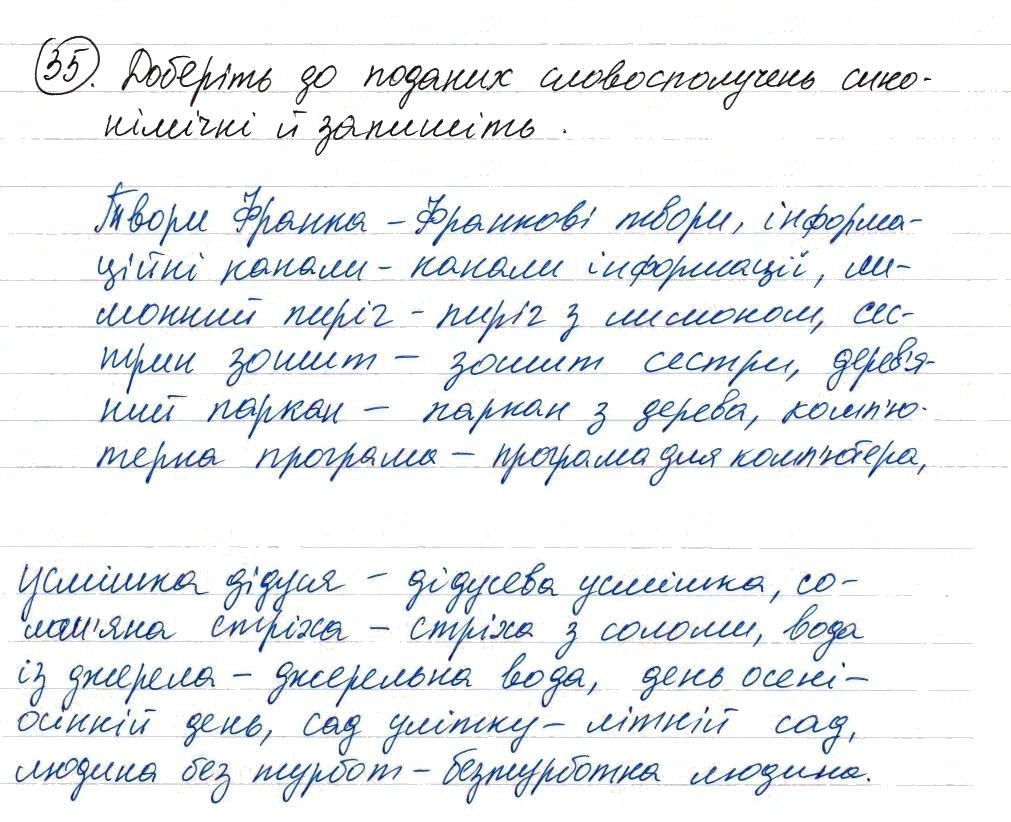 35. Доберіть до поданих словосполучень сино-
німічні й запишіть.
Твори Франка – Франкові твори, інформа-
ційні канали – канали інформації, ли-
монний пиріг – пиріг з лимоном, сес-
трин зошит – зошит сестри, дерев'я-
ний паркан – паркан з дерева, комп'ю-
терна програма – програма для комп'ютера,
усмішка дідуся – дідусева усмішка, со-
лом'яна стріха – стріха з соломи, вода
із джерела – джерельна вода, день осені –
осінній день, сад улітку – літній сад,
людина без турбот – безтурботна людина.